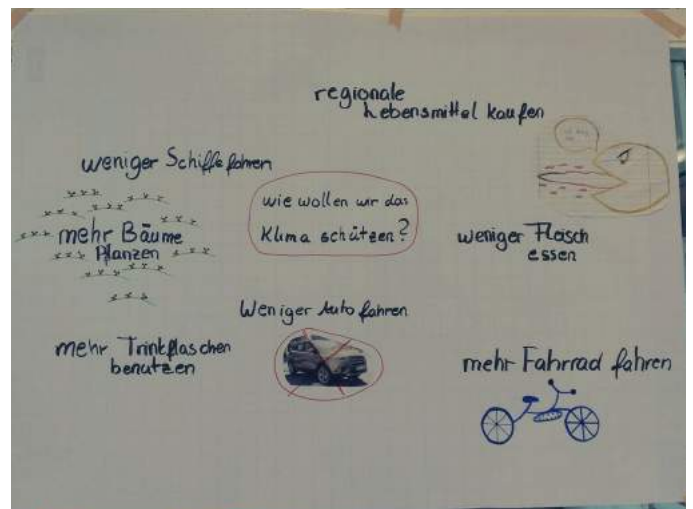 regionale
Lebensmittel kaufen
weniger Schiffe fahren
wie wollen wir das
Klima schützen?
mehr Bäume
Pflanzen
weniger Fleisch
essen
Weniger Auto fahren
mehr Trinkflaschen
benutzen
mehr Fahrrad fahren